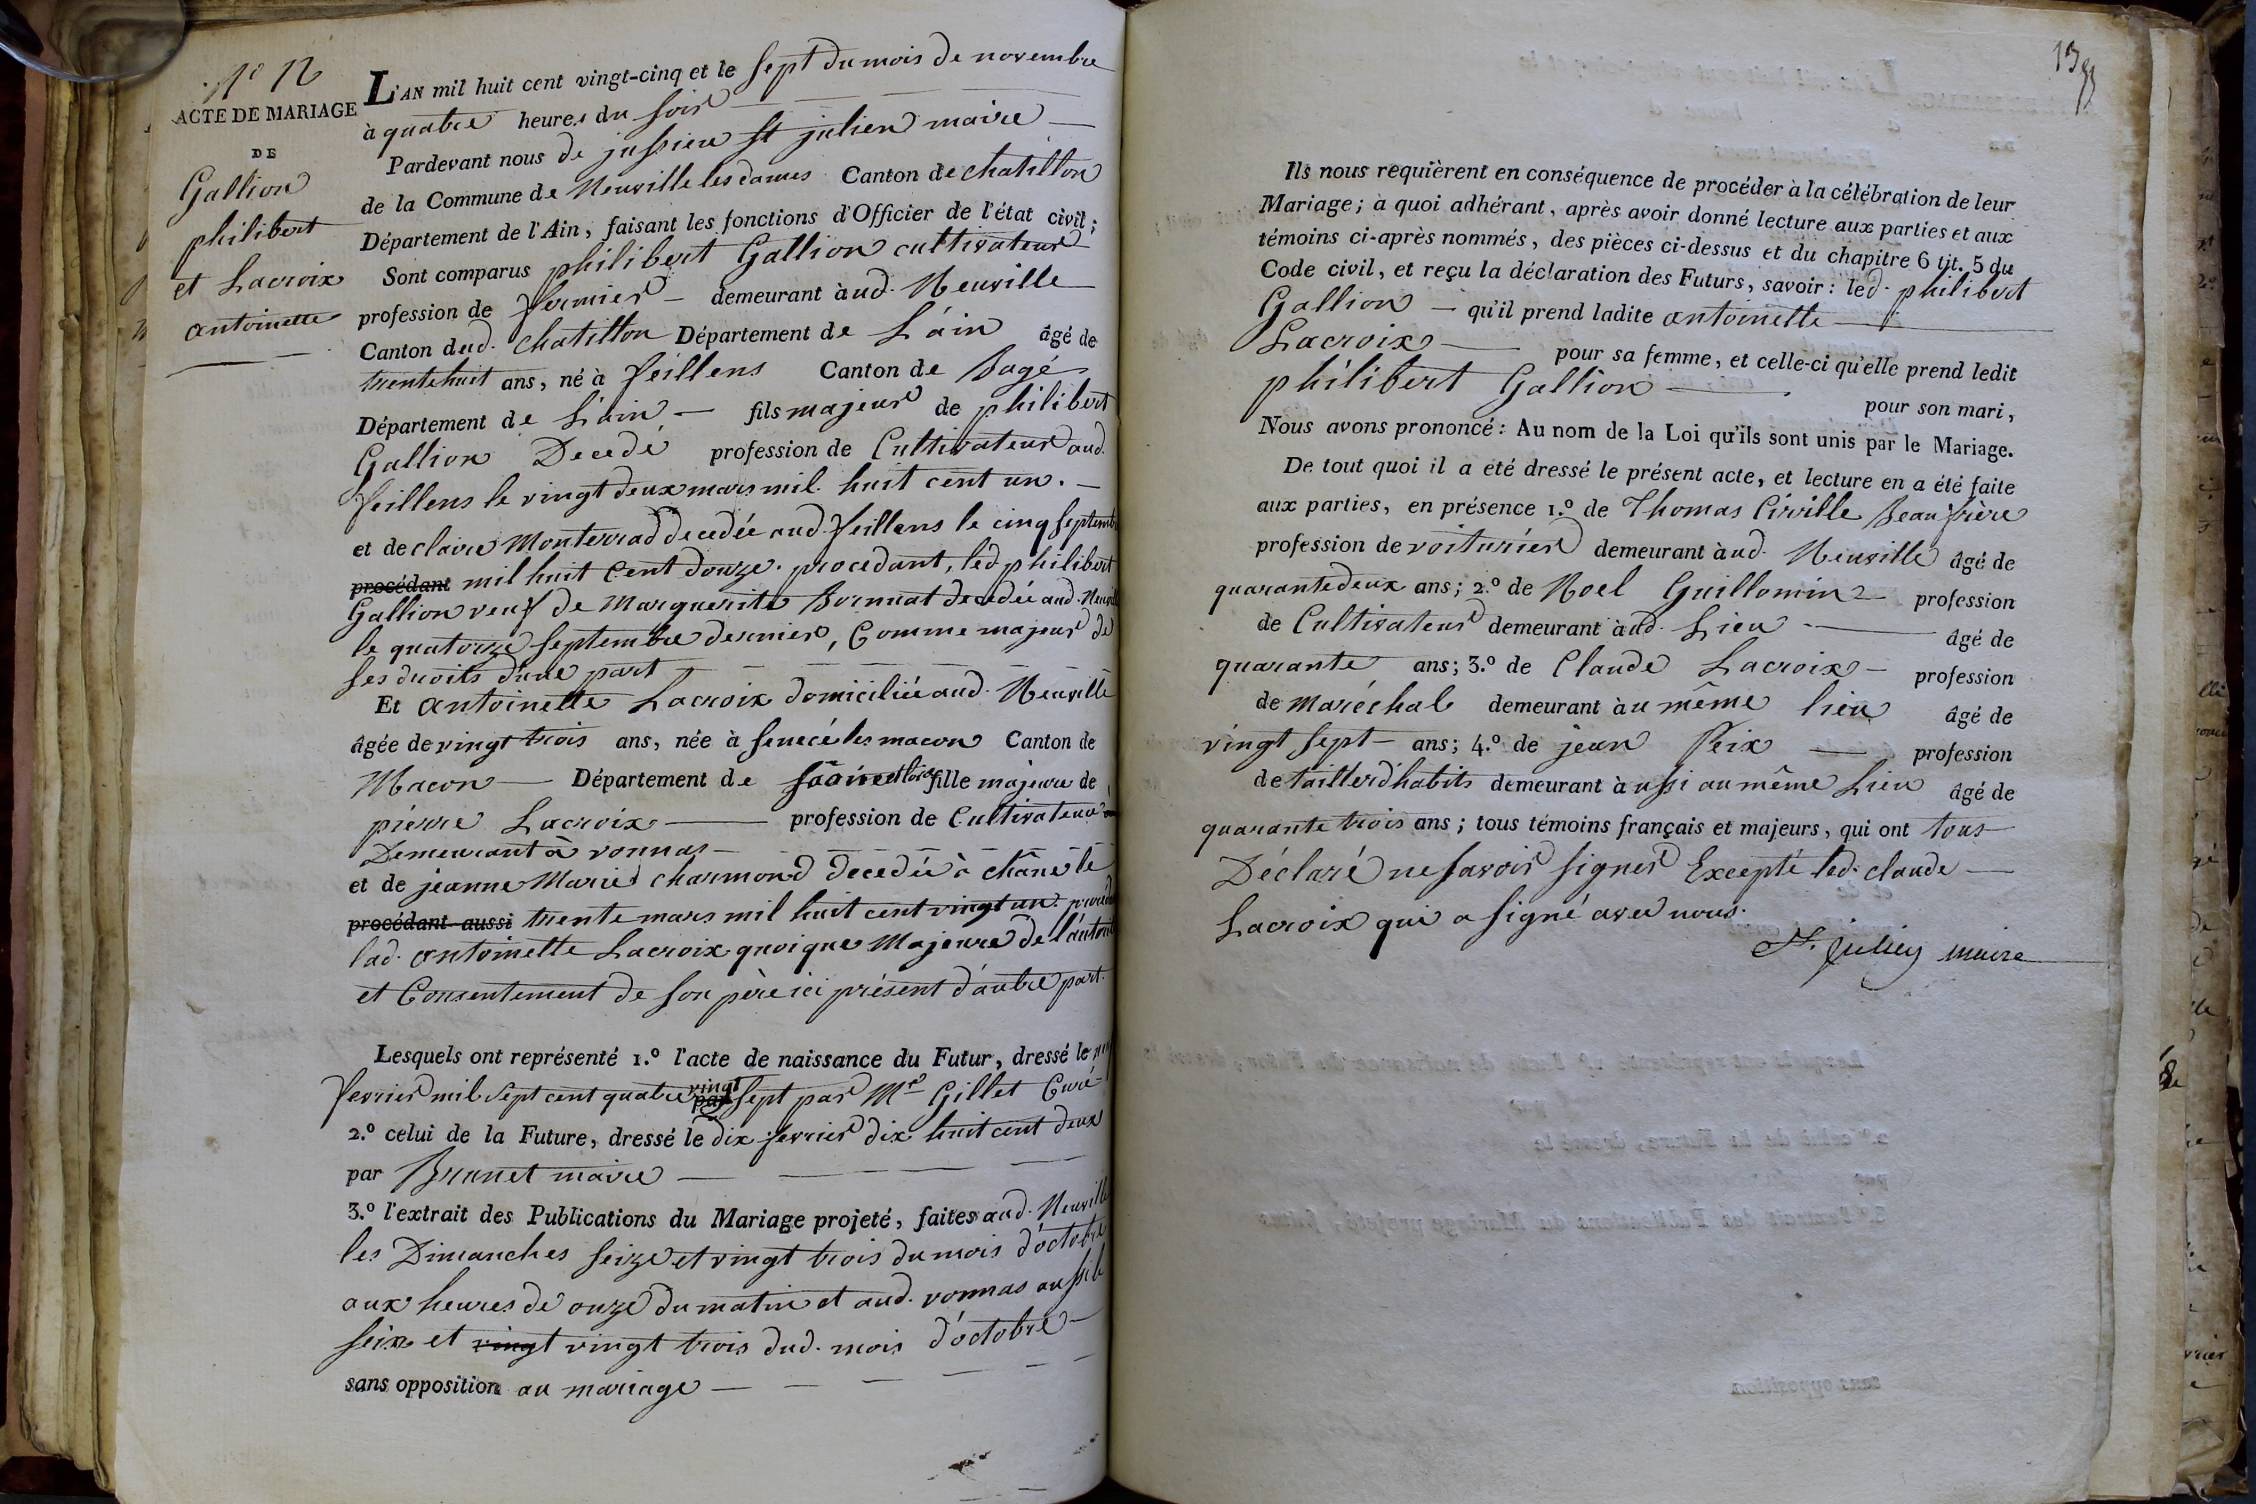 N° 12
ACTE DE MARIAGE
DE
Gallion
philibert
et Lacroix
antoinette
L'AN mil huit cent vingt-cinq et le sept du mois de novembre
à quatre heures du soir
Pardevant nous de jussieu st julien maire
de la Commune de Neuville les dames Canton de chatillon
Département de l'Ain, faisant les fonctions d'Officier de l'état civil;
Sont comparus philibert Gallion cultivateur
profession de fermier demeurant àud. Neuville
Canton dud. chatillon Département de L'ain âgé de
trente huit ans, né à feillens Canton de Bagé
Département de L'ain fils majeur de philibert
Gallion Décédé profession de Cultivateur aud.
feillens le vingt deux mars mil huit cent un.
et de claire Monterrad decedée aud. feillens le cinq septembre
procédant mil huit Cent douze. procedant, led philibert
Gallion veuf de Marguerite Bornuat decedée aud. Neuville
le quatorze septembre dernier, Comme majeur de
ses droits d'une part
Et antoinette Lacroix domiciliée aud. Neuville
âgée de vingt trois ans, née à senecé les macon Canton de
Macon Département de saône et loire fille majeure de
pierre Lacroix profession de Cultivateur
Demeurant à vonnas
et de jeanne Marie charmond decedée à châne le
procédant aussi trente mars mil huit cent vingt un.
lad. antoinette Lacroix quoique Majeure de l'autorité
et Consentement de son père ici présent d'autre part.
Lesquels ont représenté 1.° l'acte de naissance du Futur, dressé le
fevrier mil sept cent quatre vingt sept par Mre Gillet Curé
2.° celui de la Future, dressé le dix fevrier dix huit cent deux
par Brunet maire
3.° l'extrait des Publications du Mariage projeté, faites aud. Neuville
les Dimanches seize et vingt trois du mois d'octobre
aux heures de onze du matin et aud. vonnas aussi le
seize et vingt vingt trois dud. mois d'octobre
sans opposition au mariage
13
Ils nous requièrent en conséquence de procéder à la célébration de leur
Mariage; à quoi adhérant, après avoir donné lecture aux parties et aux
témoins ci-après nommés, des pièces ci-dessus et du chapitre 6 tit. 5 du
Code civil, et reçu la déclaration des Futurs, savoir: led. philibert
Gallion qu'il prend ladite antoinette
Lacroix pour sa femme, et celle-ci qu'elle prend ledit
philibert Gallion pour son mari,
Nous avons prononcé: Au nom de la Loi qu'ils sont unis par le Mariage.
De tout quoi il a été dressé le présent acte, et lecture en a été faite
aux parties, en présence 1.° de Thomas Cirville Beaufrère
profession de voiturier demeurant àud. Neuville âgé de
quarante deux ans; 2.° de Noel Guillomin profession
de Cultivateur demeurant àud. Lieu âgé de
quarante ans; 3.° de Claude Lacroix profession
de maréchal demeurant àu même lieu âgé de
vingt sept ans; 4.° de jean feix profession
de tailler d'habits demeurant àussi au même Lieu âgé de
quarante trois ans; tous témoins français et majeurs, qui ont tous
Déclaré ne savoir signer Excepté led. claude
Lacroix qui a signé avec nous.
St. julien maire